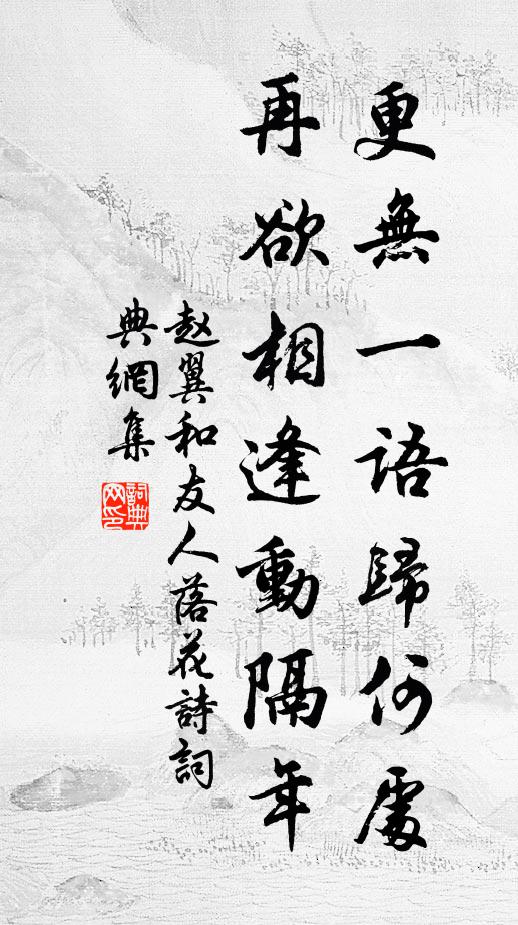 更無一語歸何處
再欲相逢動隔年
赵翼和友人落花詩詞
典網集
詞典
网印